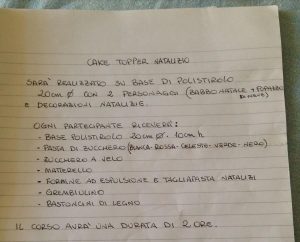 CAKE TOPPER NATALIZIO
SARA' REALIZZATO SU BASE DI POLISTIROLO
20cm Ø CON 2 PERSONAGGI (BABBO NATALE + PUPAZZO
DI NEVE)
E DECORAZIONI NATALIZIE.
OGNI PARTECIPANTE RICEVERÀ:
- BASE POLISTIROLO 20cm Ø - 10cm h
- PASTA DI ZUCCHERO (BIANCA-ROSSA-CELESTE-VERDE-NERO)
- ZUCCHERO A VELO
- MATTERELLO
- FORMINE AD ESPULSIONE E TAGLIAPASTA NATALIZI
- GREMBIULINO
- BASTONCINI DI LEGNO
IL CORSO AVRA' UNA DURATA DI 2 ORE.